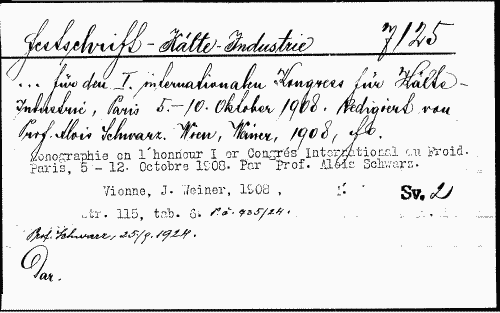 Festschrift - Kälte-Industrie 7/125
... für den I. internationalen Kongress für Kälte-
Industrie, Paris 5.-10. Oktober 1908. Redigiert von
Prof. Alois Schwarz. Wien, Weiner, 1908,
Monographie en l'honneur I er Congrés International au Froid.
Paris, 5 - 12. Octobre 1908. Par Prof. Alois Schwarz.
Vionne, J. Weiner, 1908, Sv. 2
str. 115, tab. 6. P.č. 435/24.
Prof. Schwarz, 25/9. 1924.
Dar.